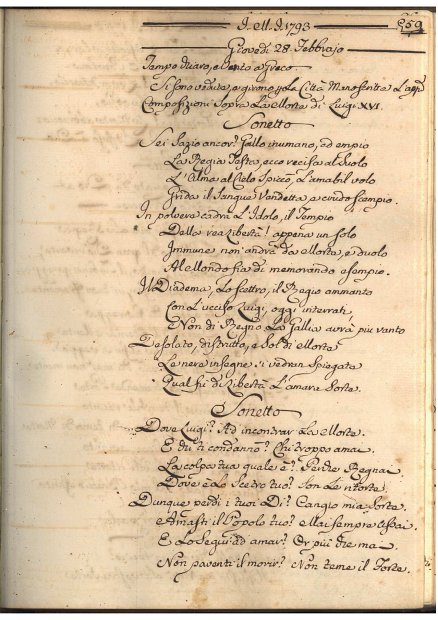 I. M. I. 1793
259
Giovedì 28. Febbrajo
Tempo duaro, e Vento a Greco.
Si sono vedute, e girono p. La Città Manoscritte L'
Composizioni Sopra La Morte di Luigi XVI.
Sonetto
Sei Sazio ancor? Gallo inumano, ed empio
La Regia Testa, ecco recisa al Suolo
L'Alma al Cielo Spiccò, L'amabil volo
Grida il Sangue Vendetta, e crudo scempio.
In polvere cadrà L'Idolo, il Tempio
Dalla rea Libertà! appena un solo
Immune non andrà da Morte, e duolo
Al Mondo fia di memorando esempio.
Il Diadema, Lo Scettro, il Regio ammanto
Con L'ucciso Luigi, oggi interrati,
Non di Regno La Gallia avrà più vanto
Desolato, distrutto, e Sol di Morte
Le nere insegne si vedran Spiegate
Qual fù di Libertà L'amara Sorte.
Sonetto
Dove Luigi? Ad incontrar La Morte.
E di ti condannò? Chi troppo amai.
La colpa tua quale è? Perche Regnai.
Dove è Lo Scetro tuo? Son Le ritorte.
Dunque perdi i tuoi Dì? Cangio mia Sorte.
Amasti il Popolo tuo? Mai Sempre
E Lo Segui ad amar? Or più che mai.
Non paventi il morir? Non teme il Forte.